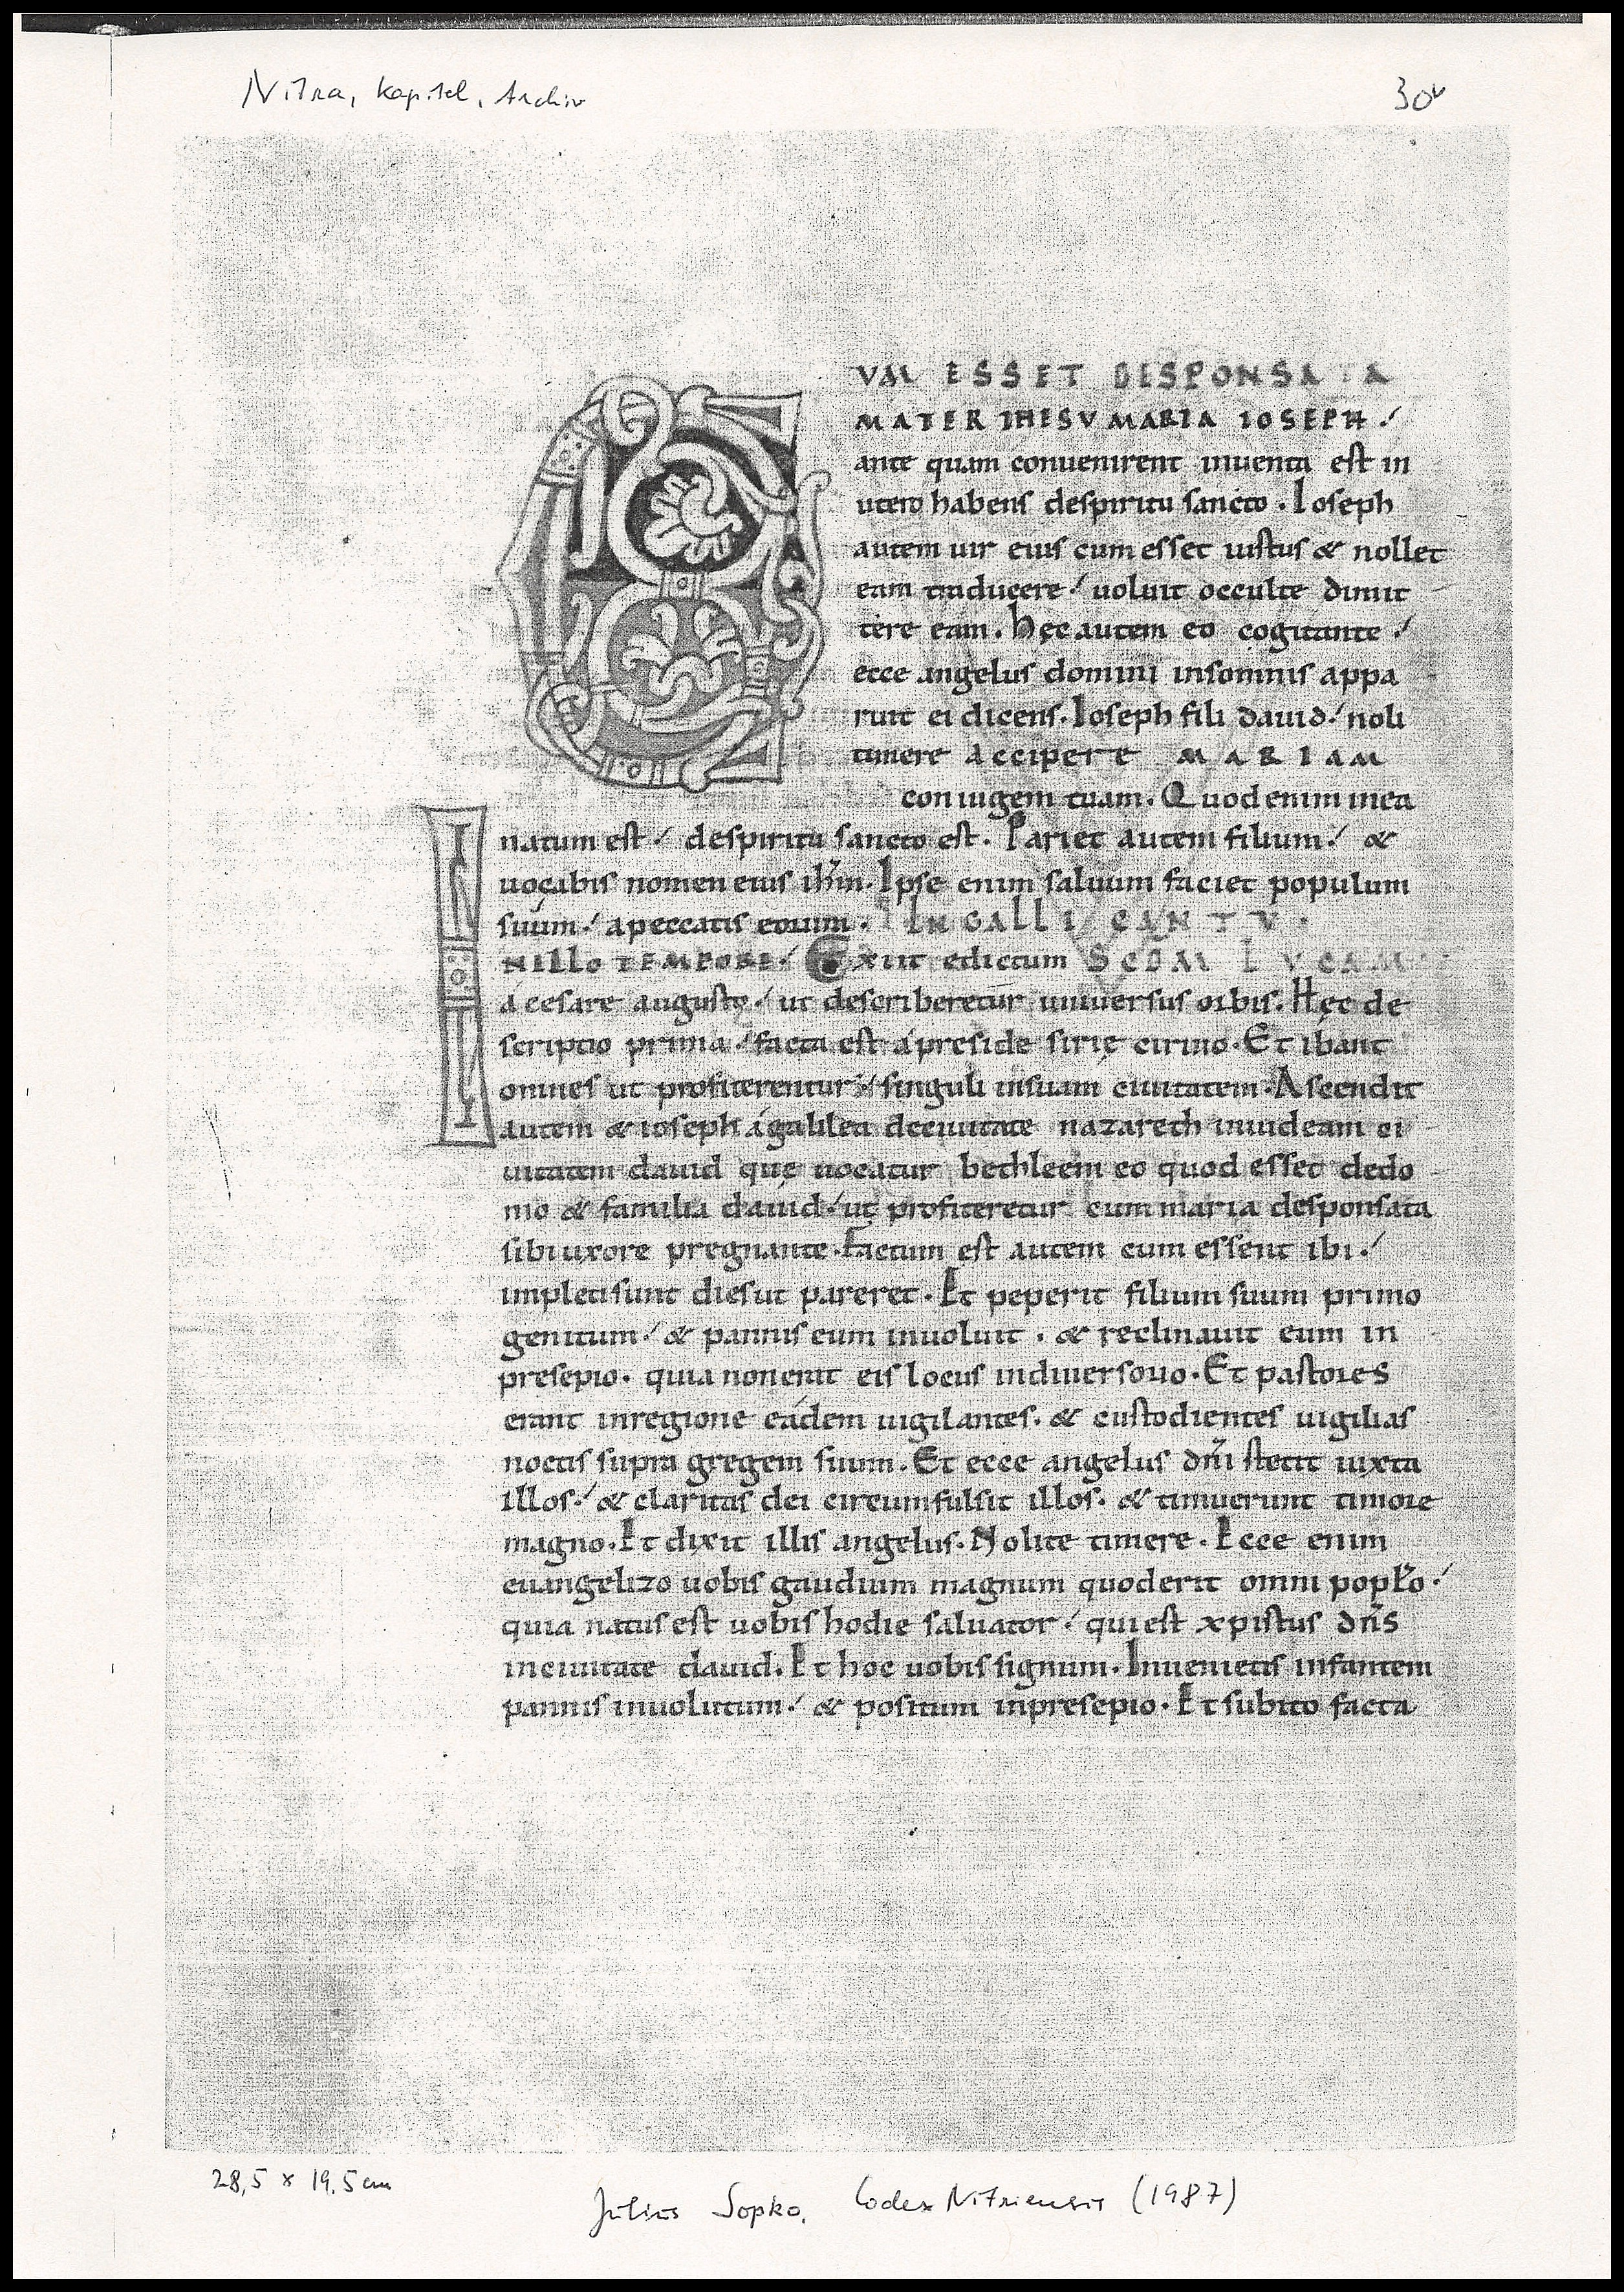 Nitra, Kapitel, Archiv
30v
CVM ESSET DESPONSATA
MATER IHESV MARIA IOSEPH.
ante quam conuenirent inuenta est in
utero habens despiritu sancto. Ioseph
autem uir eius cum esset iustus & nollet
eam traducere uoluit occulte dimit
tere eam. Hęc autem eo cogitante.
ecce angelus domini insomnis appa
ruit ei dicens. Ioseph fili dauid. noli
timere accipere MARIAM
coniugem tuam. Quod enim inea
natum est. despiritu sancto est. Pariet autem filium. &
uocabis nomen eius ihm̄. Ipse enim saluum faciet populum
suum. apeccatis eorum. IN GALLI CANTV.
INILLO TEMPORE. Exiit edictum SCDM LVCAM
a cesare augusto. ut describeretur uniuersus orbis. Hęc de
scriptio prima. facta est apreside sirię cirino. Et ibant
omnes ut profiterentur. singuli insuam ciuitatem. Ascendit
autem & ioseph agalilea deciuitate nazareth iniudeam ci
uitatem dauid quę uocatur bethleem eo quod esset dedo
mo & familia dauid. ut profiteretur cum maria desponsata
sibi uxore pregnante. Factum est autem cum essent ibi.
impleti sunt dies ut pareret. Et peperit filium suum primo
genitum. & pannis eum inuoluit. & reclinauit eum in
presepio. quia nonerat eis locus indiuersorio. Et pastores
erant inregione eadem uigilantes. & custodientes uigilias
noctis supra gregem suum. Et ecce angelus dn̄i stetit iuxta
illos. & claritas dei circumfulsit illos. & timuerunt timore
magno. Et dixit illis angelus. Nolite timere. Ecce enim
euangelizo uobis gaudium magnum quoderit omni popl̄o.
quia natus est uobis hodie saluator. qui est xpistus dn̄s
inciuitate dauid. Et hoc uobis signum. Inuenietis infantem
pannis inuolutum. & positum inpresepio. Et subito facta
28,5 x 19,5 cm
Július Sopko, Codex Nitriensis (1987)